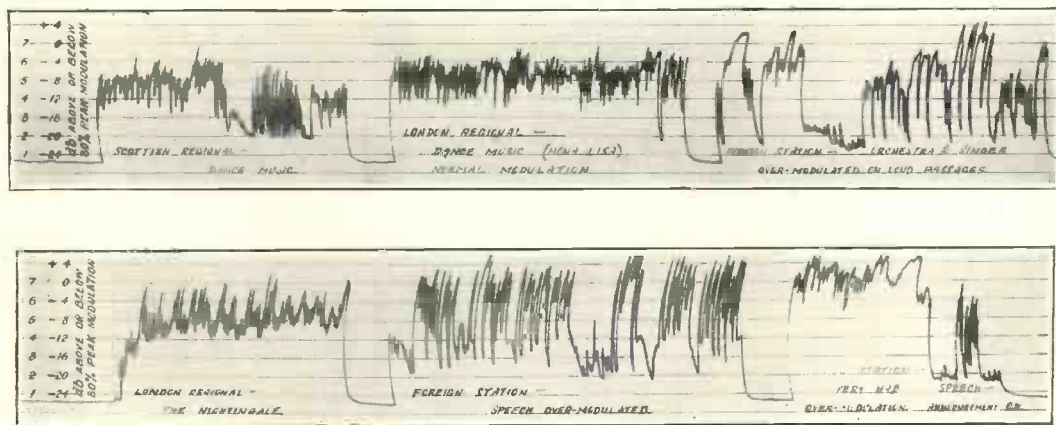 +4
7 0
6 -4
5 -8
4 -12
3 -16
2 -20
1 -24
db ABOVE OR BELOW
80% PEAK MODULATION
SCOTTISH REGIONAL —
DANCE MUSIC
LONDON REGIONAL —
DANCE MUSIC (MONA LISA)
NORMAL MODULATION
FOREIGN STATION — ORCHESTRA & SINGER
OVER-MODULATED ON LOUD PASSAGES
+4
7 0
6 -4
5 -8
4 -12
3 -16
2 -20
1 -24
db ABOVE OR BELOW
80% PEAK MODULATION
LONDON REGIONAL —
THE NIGHTINGALE
FOREIGN STATION —
SPEECH OVER-MODULATED
STATION —
VERY BAD SPEECH —
OVER-MODULATION ANNOUNCEMENT O.K.